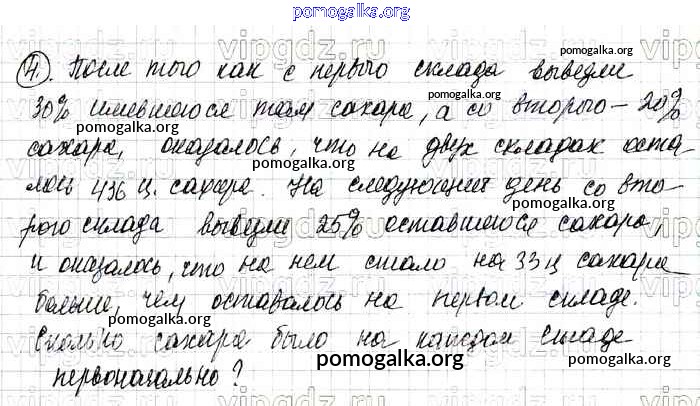 pomogalka.org
4. После того как с первого склада вывезли
pomogalka.org
30% имевшегося там сахара, а со второго - 20%
pomogalka.org
сахара, оказалось, что на двух складах оста-
pomogalka.org
лось 436 ц. сахара. На следующий день со вто-
pomogalka.org
рого склада вывезли 25% оставшегося сахара
и оказалось, что на нем стало на 33 ц сахара
pomogalka.org
больше, чем оставалось на первом складе.
pomogalka.org
Сколько сахара было на каждом складе
pomogalka.org
первоначально?